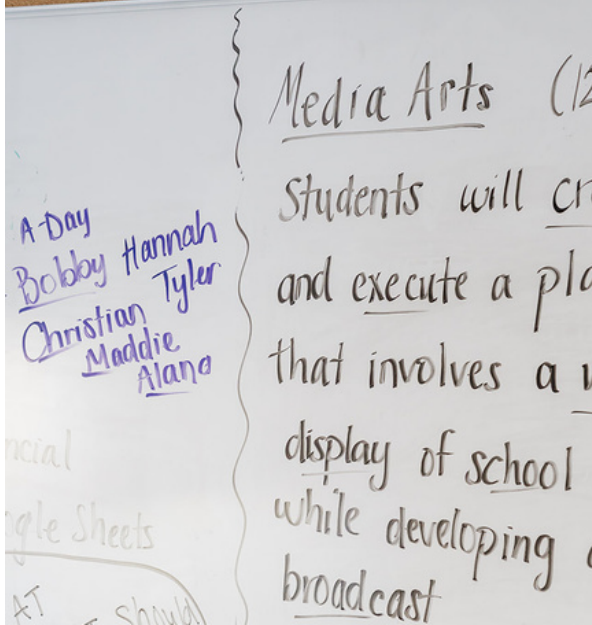 A-Day
Bobby Hannah
Tyler
Christian
Maddie
Alana
ncial
gle Sheets
AT
Should
Media Arts (12
Students will cr
and execute a pla
that involves a
display of school
while developing
broadcast